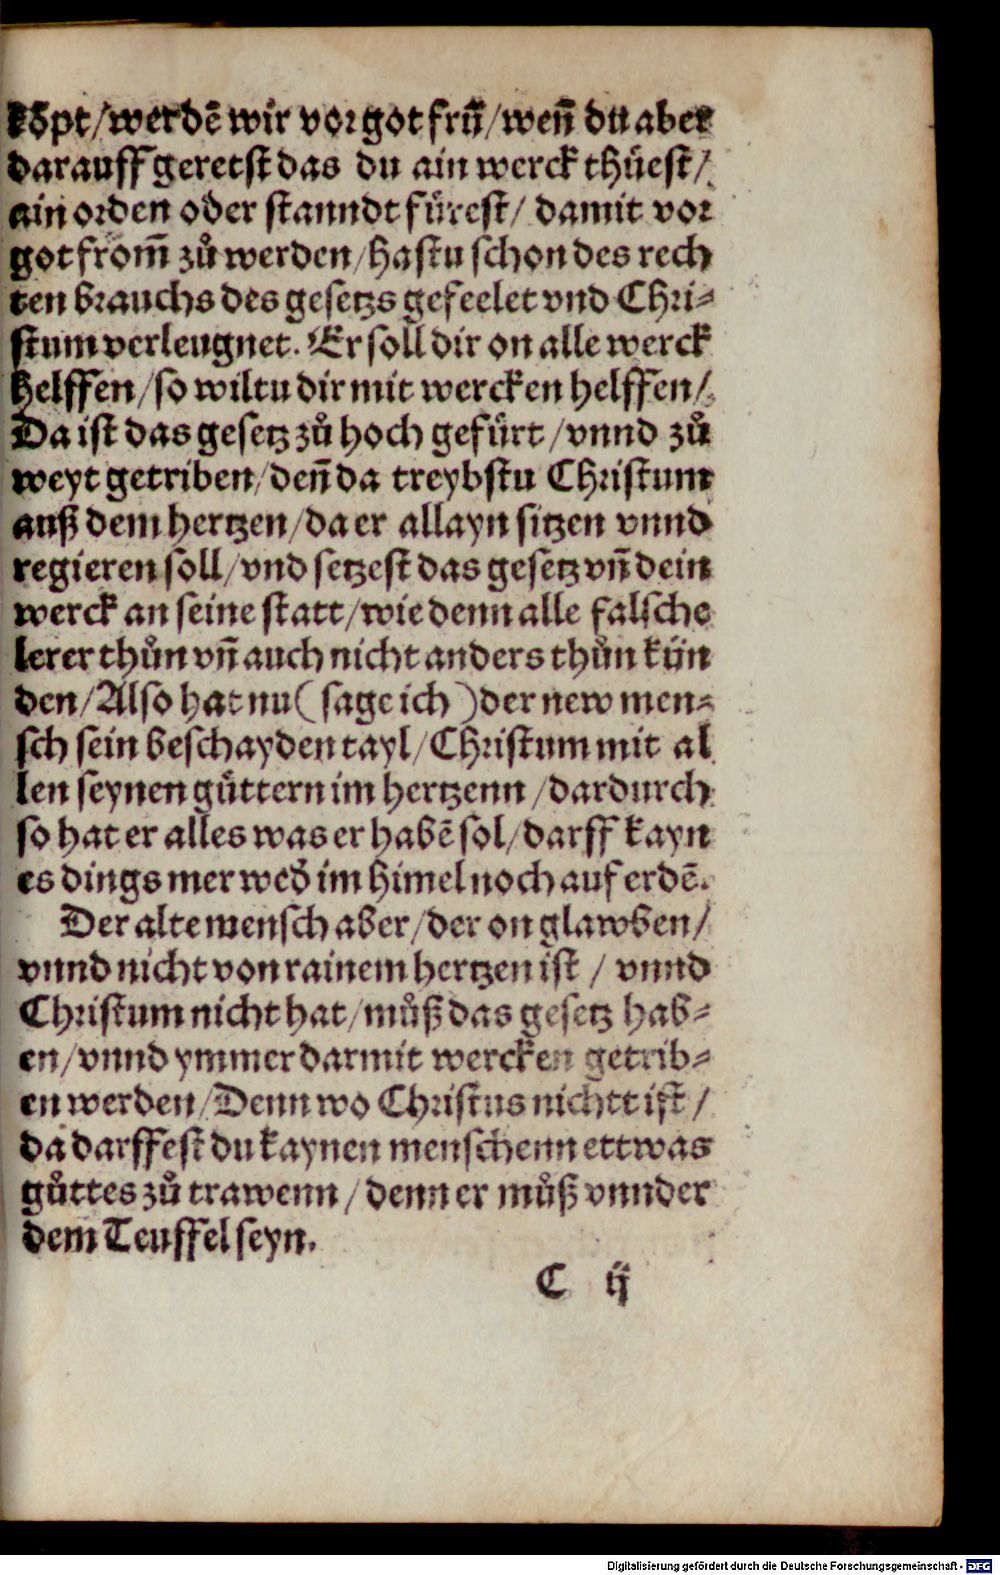 köpt/werdē wir vor got frū̄/weñ du aber
darauff geretst das du ain werck thüest/
ain orden oder stanndt fürest/ damit vor
got from̃ zů werden/hastu schon des rech
ten brauchs des gesetzs gefeelet vnd Chri⸗
stum verleugnet. Er soll dir on alle werck
helffen/so wiltu dir mit wercken helffen/
Da ist das gesetz zů hoch gefürt/vnnd zů
weyt getriben/deñ da treybstu Christum
auß dem hertzen/da er allayn sitzen vnnd
regieren soll/vnd setzest das gesetz vñ dein
werck an seine statt/wie denn alle falsche
lerer thůn vñ auch nicht anders thůn kün
den/Also hat nu (sage ich) der new men⸗
sch sein beschayden tayl/Christum mit al
len seynen gůttern im hertzenn/dardurch
so hat er alles was er habē sol/darff kayn
es dings mer wed̄ im himel noch auf erdē.
Der alte mensch aber/der on glawben/
vnnd nicht von rainem hertzen ist / vnnd
Christum nicht hat/můß das gesetz hab⸗
en/vnnd ymmer darmit wercken getrib⸗
en werden/Denn wo Christus nichtt ist /
da darffest du kaynen menschenn ettwas
gůttes zů trawenn/denn er můß vnnder
dem Teuffel seyn.
C ij
Digitalisierung gefördert durch die Deutsche Forschungsgemeinschaft - DFG